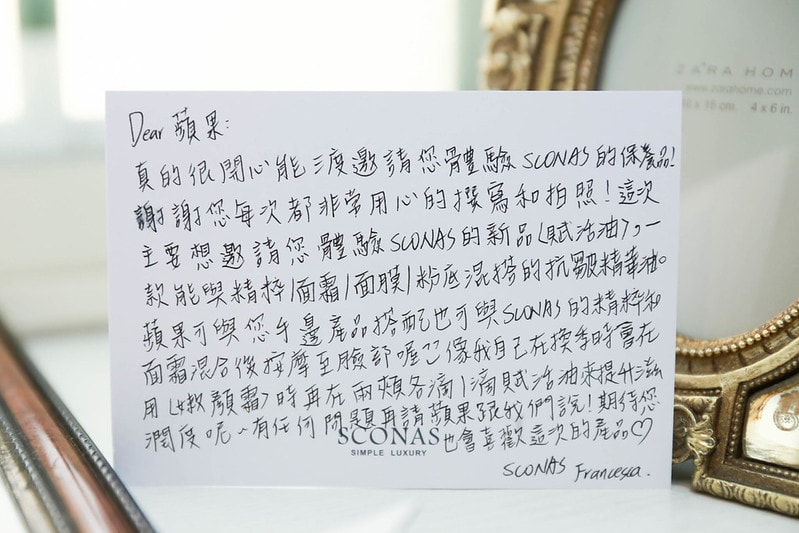 Dear 蘋果:
真的很開心能三度邀請您體驗SCONAS的保養品!
謝謝您每次都非常用心的撰寫和拍照!這次
主要想邀請您體驗SCONAS的新品〈賦活油〉,一
款能與精粹/面霜/面膜/粉底混搭的抗皺精華油。
蘋果可與您手邊產品搭配也可與SCONAS的精粹和
面霜混合後按摩至臉部喔~像我自己在換季時會在
用〈嫩顏霜〉時再在兩頰各滴1滴賦活油來提升澎
潤度呢~有任何問題再請蘋果跟我們說!期待您
也會喜歡這次的產品♡
SCONAS
SIMPLE LUXURY
SCONAS Francesca.
ZARA HOM
www.zarahome.com
16 cm. 4 x 6 in.